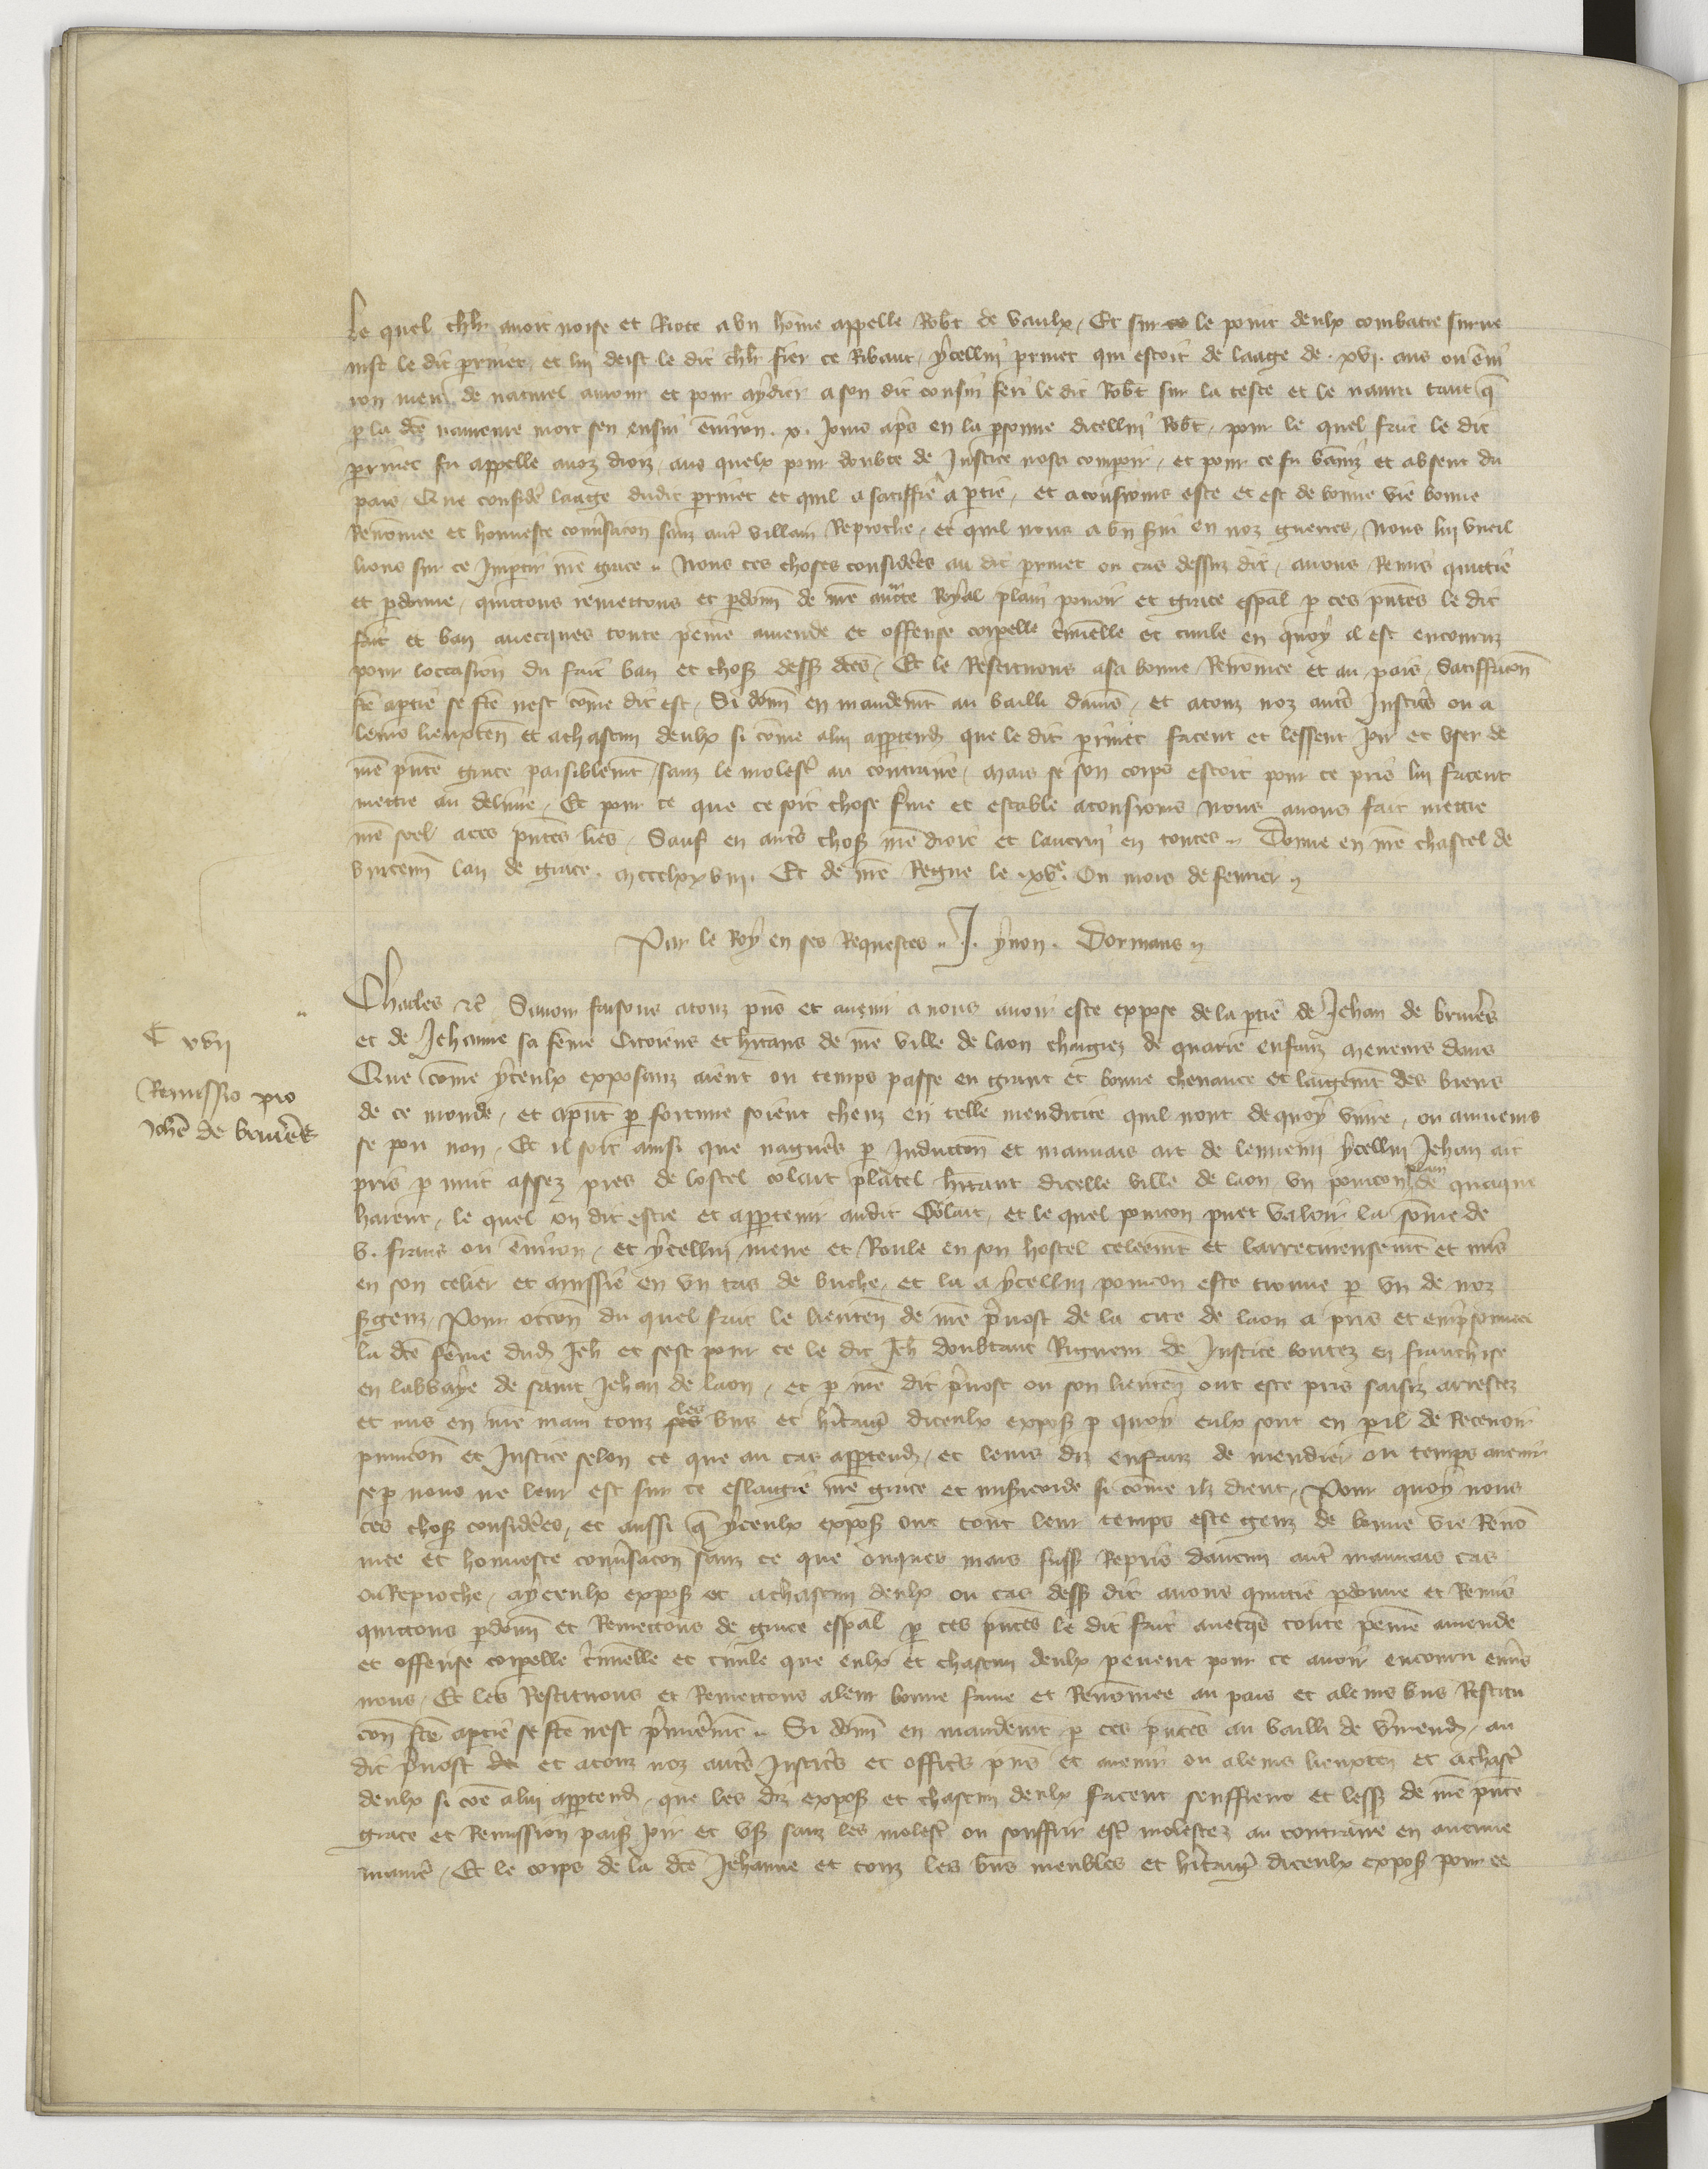 le quel chlr avoit noise et Riote a vn home appelle Robt de vaulx, Et sur le point deulx combatre surve
nist le dit perrinet et lui deist le dit chlr fier ce Ribaut, ycellui prinet qui estoit de laage de .xvj. ans ou env
ron meu de naturel amour et pour aydier a son dit cousin feri le dit Robt sur la teste et le navra tant q
p la dte navreure mort sen ensui environ .x. jours aps en la psonne dicellui Robt, pour le quel fait le dit
prinet fu appelle a noz droiz, aus quelx pour doubte de Justice nosa comparoir, et pour ce fu baniz et absent du
pais Que consider laage dudit prinet et quil a satiffie a ptie, et a tousjours este et est de bonne vie bonne
Renommee et honneste conversacon sanz autr villain Reproche, et quil nous a bn servi en noz guerres, Nous lui vueil
lions sur ce Impartir nre grace .. Nous ces choses considerees au dit prinet ou cas dessuz dit, avons Remis quittie
et pdonne, quittons remettons et pdonn de nre aucte Royal plain povoir et grace espal p ces pntes le dit
fait et ban avecques toute peine amende et offense corpelle criminelle et civile en quoy il est encouruz
pour loccasion du fait ban et choses dess dtes, Et le Restituons a sa bonne Renommee et au pais, Satiffacon
fte a ptie se fte nest come dit est, Si donn en mandemt au bailli damies, et a touz noz autrs Justics ou a
leurs lieuxten et a chascun deulx si come a lui apptend que le dit prinet facent et lessent joir et vser de
nre pnte grace paisiblemt, sanz le molestr au contraire, mais se son corps estoit pour ce pris lui facent
mettre au delivre, Et pour ce que ce soit chose ferme et estable a tousjours Nous avons fait mettre
nre seel a ces pntes lres, Sauf en autrs choses nre droit et lautrui en toutes .. Donne en nre chastel de
vincenn lan de grace . mccclxxviij. Et de nre Regne le .xve. Ou mois de fevrier ..
Par le Roy en ses Requestes .. J. ynon. Dormans ..
Charles etc Savoir faisons a touz pns et avenir a nous avoir este expose de la ptie de Jehan de bruieres
C xvij
Remissio pro
Johe de bruieres
et de Jehanne sa feme Citoiens et hitans de nre ville de laon chargiez de quatre enfanz meneurs dans
Que come yceulx exposanz aient ou temps passe eu grant et bonne chevance et largemt des biens
de ce monde, et apnt p fortune soient cheuz en telle mendicite quil nont de quoy vivre, ou au mens
se pou non, Et il soit ainsi que nagueres p Induccon et mauvais art de lennemi ycellui Jehan ait
pris p nuit assez pres de lostel colart platel hitant dicelle ville de laon vn poincon plain de quaque
harent, le quel on dit estre et apptenir audit Colart, et le quel poincon puet valoir la some de
v. frans ou environ, et ycellui mene et Roule en son hostel celeemt et larrecineusemt et mis
en son celier et mussie en vn tas de buche, et la a ycellui poincon este trouve p vn de noz
sgenz, Pour occon du quel fait le lieuten de nre prevost de la cite de laon a pris et emprisonnee
la dte feme dud Jeh et sest pour ce le dit Jeh doubtant Rigueur de Justice boutez en franchise
en labbaye de saint Jehan de laon, et p nre dit prevost ou son lieuten ont este pris saisiz arrestez
et mis en nre main touz les bns et hitages diceulx expos p quoy eulx sont en peril de Recevoir
punicon et Justice selon ce que au cas apptend, et leurs diz enfanz de mendier ou temps avenir
se p nous ne leur est sur ce eslargie nre grace et misericorde si come ilz dient, Pour quoy nous
ces choses considerees, et aussi q yceulx expos ont tout leur temps este genz de bonne vie Reno
mee et honneste conversacon sanz ce que onques mais fuss Repris daucun autr mauvais cas
ou Reproche, a yceulx expos et a chascun deulx ou cas dess dit avons quittie pdonne et Remis
quittons pdonn et Remettons de grace espal p ces pntes le dit fait avecqs toute peine amende
et offense corpelle criminelle et civile que eulx et chascun deulx pevent pour ce avoir encouru envers
nous, Et les Restituons et Remettons a leur bonne fame et Renommee au pais et a leurs bns Restitu
con fte a ptie se fte nest premieremt .. Si donn en mandemt p ces pntes au bailli de vermend, au
dit prevost et a touz noz autrs Justics et officrs pns et avenir ou a leurs lieuxten et a chascr
deulx si coe a lui apptend, que les diz expos et chascun deulx facent seuffrent et less de nre pnte
grace et Remission paisi joir et vs sanz les molestr ou souffrir estr molestez au contraire en aucune
manire, Et le corps de la dte Jehanne et touz les bns meubles et hitages diceulx expos pour ce